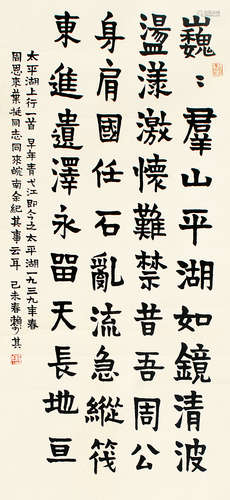 巍〻羣山平湖如鏡清波
盪漾激懷難禁昔吾周公
身肩國任石亂流急縱筏
東進遺澤永留天長地亘
太平湖上行一首 早年青弋江即今之太平湖一九三九年春
周恩來葉挺同志同來皖南余紀其事云耳 己未春賴少其